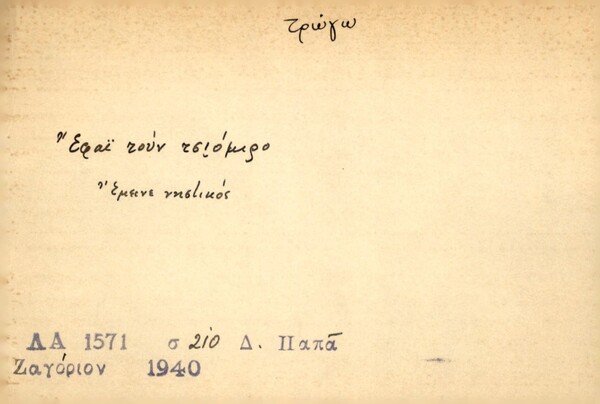 τρώγω
Ἔφαϊ τούν τσιόμρο
Ἔμεινε νηστικός
ΛΑ 1571 σ 210 Δ. Παπᾶ
Ζαγόριον 1940